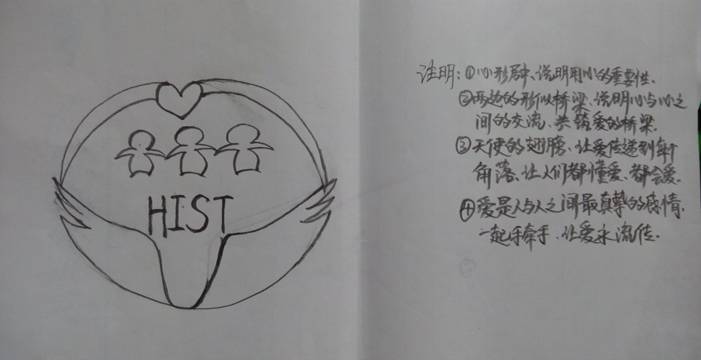 HIST
注明:①心形居中、说明用心的重要性.
②两边的形似桥梁、说明心与心之
间的交流、共筑爱的桥梁.
③天使的翅膀、让爱传递到每个
角落、让人们都懂爱、都会爱.
④爱是人与人之间最真挚的感情.
一起手牵手、让爱永流传.